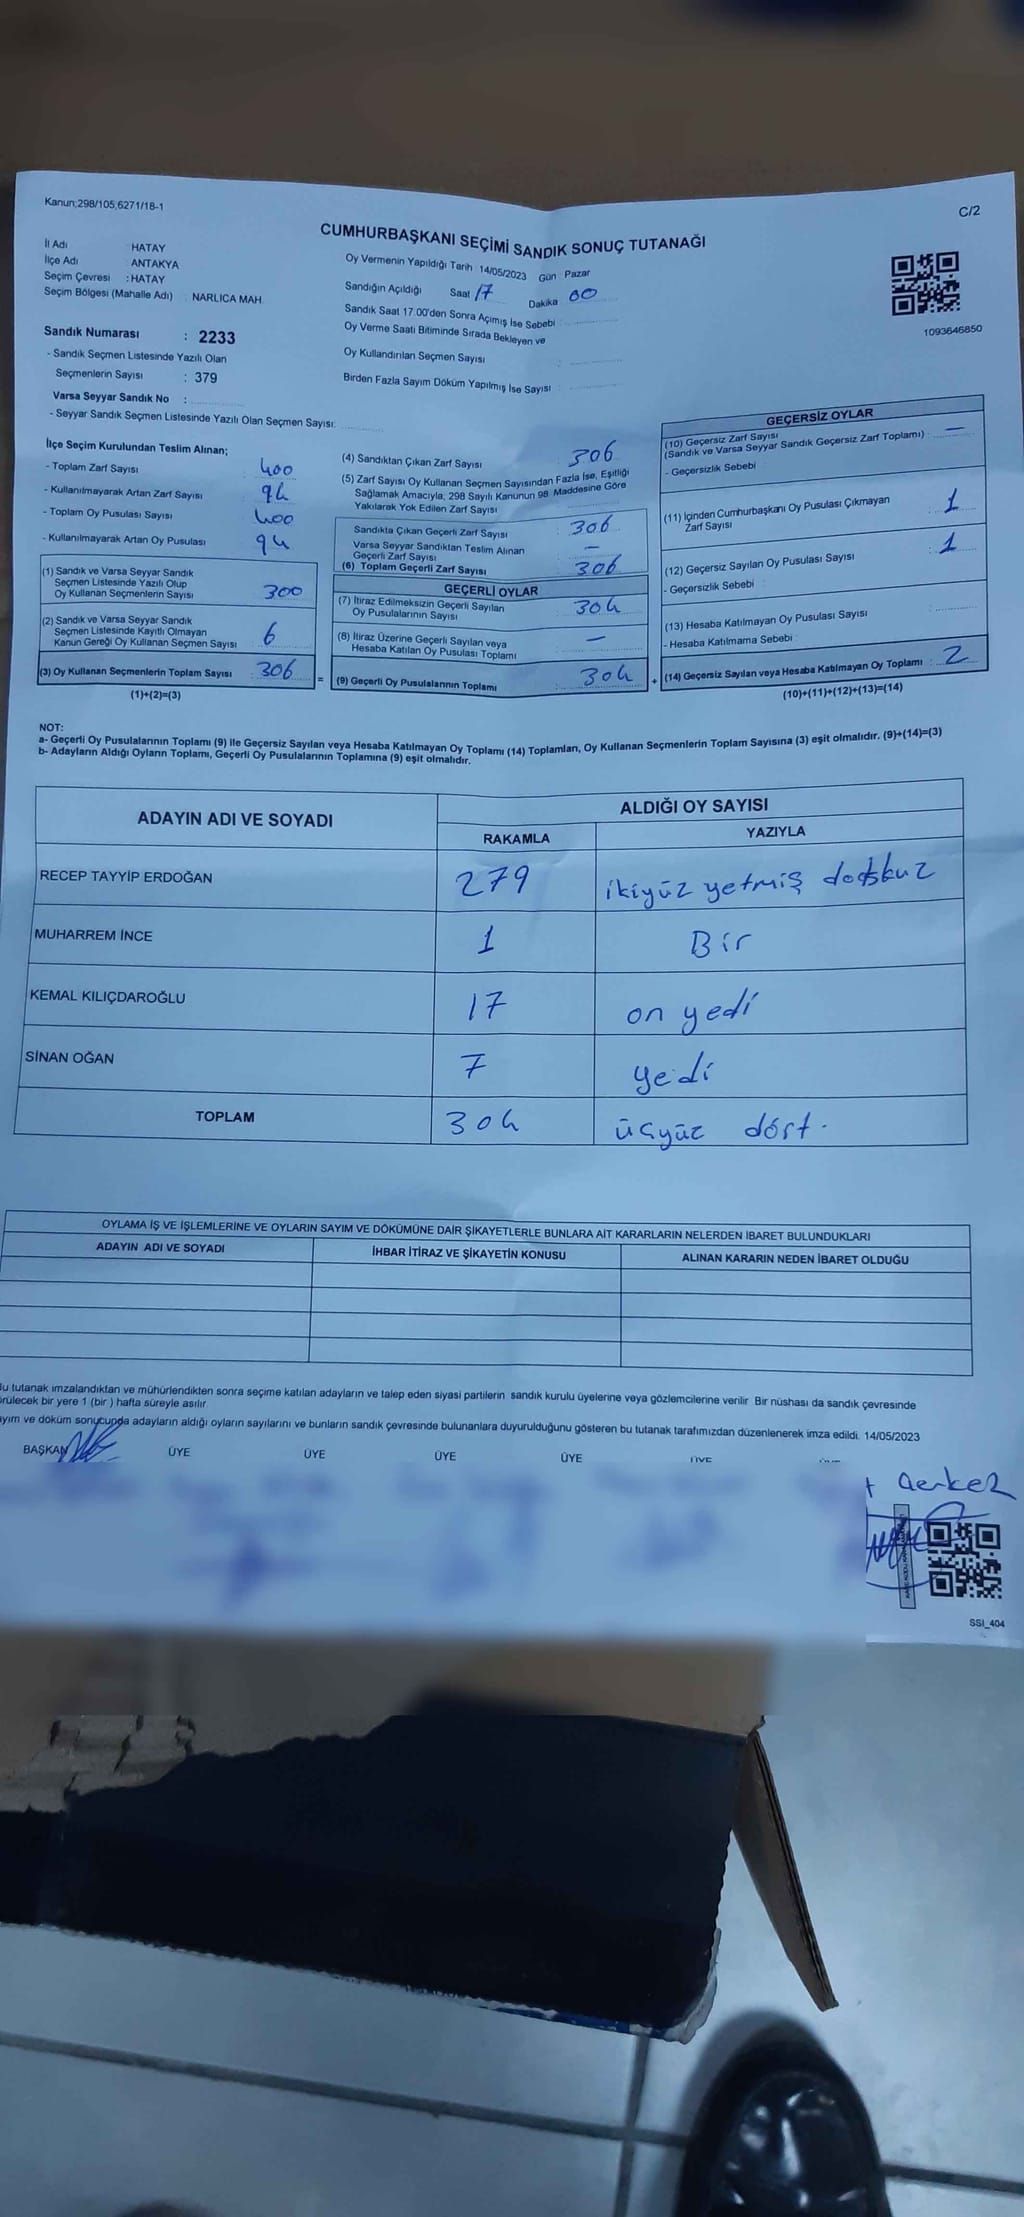 Kanun;298/105,6271/18-1
C/2
CUMHURBAŞKANI SEÇİMİ SANDIK SONUÇ TUTANAĞI
İl Adı HATAY
İlçe Adı ANTAKYA
Seçim Çevresi : HATAY
Seçim Bölgesi (Mahalle Adı) : NARLICA MAH.
Oy Vermenin Yapıldığı Tarih 14/05/2023 Gün Pazar
Sandığın Açıldığı Saat 17 Dakika 00
Sandık Saat 17.00'den Sonra Açımış İse Sebebi :
Oy Verme Saati Bitiminde Sırada Bekleyen ve
Oy Kullandırılan Seçmen Sayısı :
Birden Fazla Sayım Döküm Yapılmış İse Sayısı :
1093646850
Sandık Numarası : 2233
- Sandık Seçmen Listesinde Yazılı Olan
Seçmenlerin Sayısı : 379
Varsa Seyyar Sandık No :
- Seyyar Sandık Seçmen Listesinde Yazılı Olan Seçmen Sayısı:
İlçe Seçim Kurulundan Teslim Alınan;
- Toplam Zarf Sayısı : 400
- Kullanılmayarak Artan Zarf Sayısı : 94
- Toplam Oy Pusulası Sayısı : 400
- Kullanılmayarak Artan Oy Pusulası : 94
(1) Sandık ve Varsa Seyyar Sandık
Seçmen Listesinde Yazılı Olup
Oy Kullanan Seçmenlerin Sayısı : 300
(2) Sandık ve Varsa Seyyar Sandık
Seçmen Listesinde Kayıtlı Olmayan
Kanun Gereği Oy Kullanan Seçmen Sayısı : 6
(3) Oy Kullanan Seçmenlerin Toplam Sayısı : 306
(1)+(2)=(3)
=
(4) Sandıktan Çıkan Zarf Sayısı 306
(5) Zarf Sayısı Oy Kullanan Seçmen Sayısından Fazla İse, Eşitliği
Sağlamak Amacıyla, 298 Sayılı Kanunun 98. Maddesine Göre
Yakılarak Yok Edilen Zarf Sayısı
Sandıkta Çıkan Geçerli Zarf Sayısı : 306
Varsa Seyyar Sandıktan Teslim Alınan
Geçerli Zarf Sayısı : —
(6) Toplam Geçerli Zarf Sayısı : 306
GEÇERLİ OYLAR
(7) İtiraz Edilmeksizin Geçerli Sayılan
Oy Pusulalarının Sayısı : 304
(8) İtiraz Üzerine Geçerli Sayılan veya
Hesaba Katılan Oy Pusulası Toplamı : —
(9) Geçerli Oy Pusulalarının Toplamı : 304
+
GEÇERSİZ OYLAR
(10) Geçersiz Zarf Sayısı
(Sandık ve Varsa Seyyar Sandık Geçersiz Zarf Toplamı) : —
- Geçersizlik Sebebi
(11) İçinden Cumhurbaşkanı Oy Pusulası Çıkmayan
Zarf Sayısı : 1
(12) Geçersiz Sayılan Oy Pusulası Sayısı : 1
- Geçersizlik Sebebi :
(13) Hesaba Katılmayan Oy Pusulası Sayısı :
- Hesaba Katılmama Sebebi :
(14) Geçersiz Sayılan veya Hesaba Katılmayan Oy Toplamı : 2
(10)+(11)+(12)+(13)=(14)
NOT:
a- Geçerli Oy Pusulalarının Toplamı (9) ile Geçersiz Sayılan veya Hesaba Katılmayan Oy Toplamı (14) Toplamları, Oy Kullanan Seçmenlerin Toplam Sayısına (3) eşit olmalıdır. (9)+(14)=(3)
b- Adayların Aldığı Oyların Toplamı, Geçerli Oy Pusulalarının Toplamına (9) eşit olmalıdır.
ADAYIN ADI VE SOYADI
ALDIĞI OY SAYISI
RAKAMLA YAZIYLA
RECEP TAYYİP ERDOĞAN 279 ikiyüz yetmiş
MUHARREM İNCE 1 Bir
KEMAL KILIÇDAROĞLU 17 on yedi
SİNAN OĞAN 7 yedi
TOPLAM 304 üçyüz dört.
OYLAMA İŞ VE İŞLEMLERİNE VE OYLARIN SAYIM VE DÖKÜMÜNE DAİR ŞİKAYETLERLE BUNLARA AİT KARARLARIN NELERDEN İBARET BULUNDUKLARI
ADAYIN ADI VE SOYADI İHBAR İTİRAZ VE ŞİKAYETİN KONUSU ALINAN KARARIN NEDEN İBARET OLDUĞU
Bu tutanak imzalandıktan ve mühürlendikten sonra seçime katılan adayların ve talep eden siyasi partilerin sandık kurulu üyelerine veya gözlemcilerine verilir. Bir nüshası da sandık çevresinde
örülecek bir yere 1 (bir ) hafta süreyle asılır.
ayım ve döküm sonucunda adayların aldığı oyların sayılarını ve bunların sandık çevresinde bulunanlara duyurulduğunu gösteren bu tutanak tarafımızdan düzenlenerek imza edildi. 14/05/2023
BAŞKAN ÜYE ÜYE ÜYE ÜYE ÜYE
SSI_404